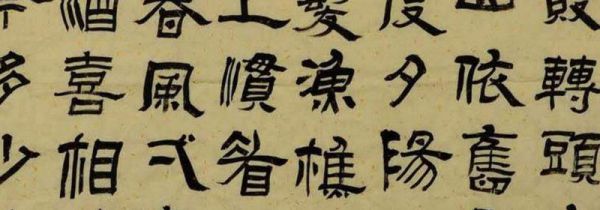 敗轉頭
山依舊
度夕陽
髮漁樵
上慣看
春風弌
酒喜相
多少